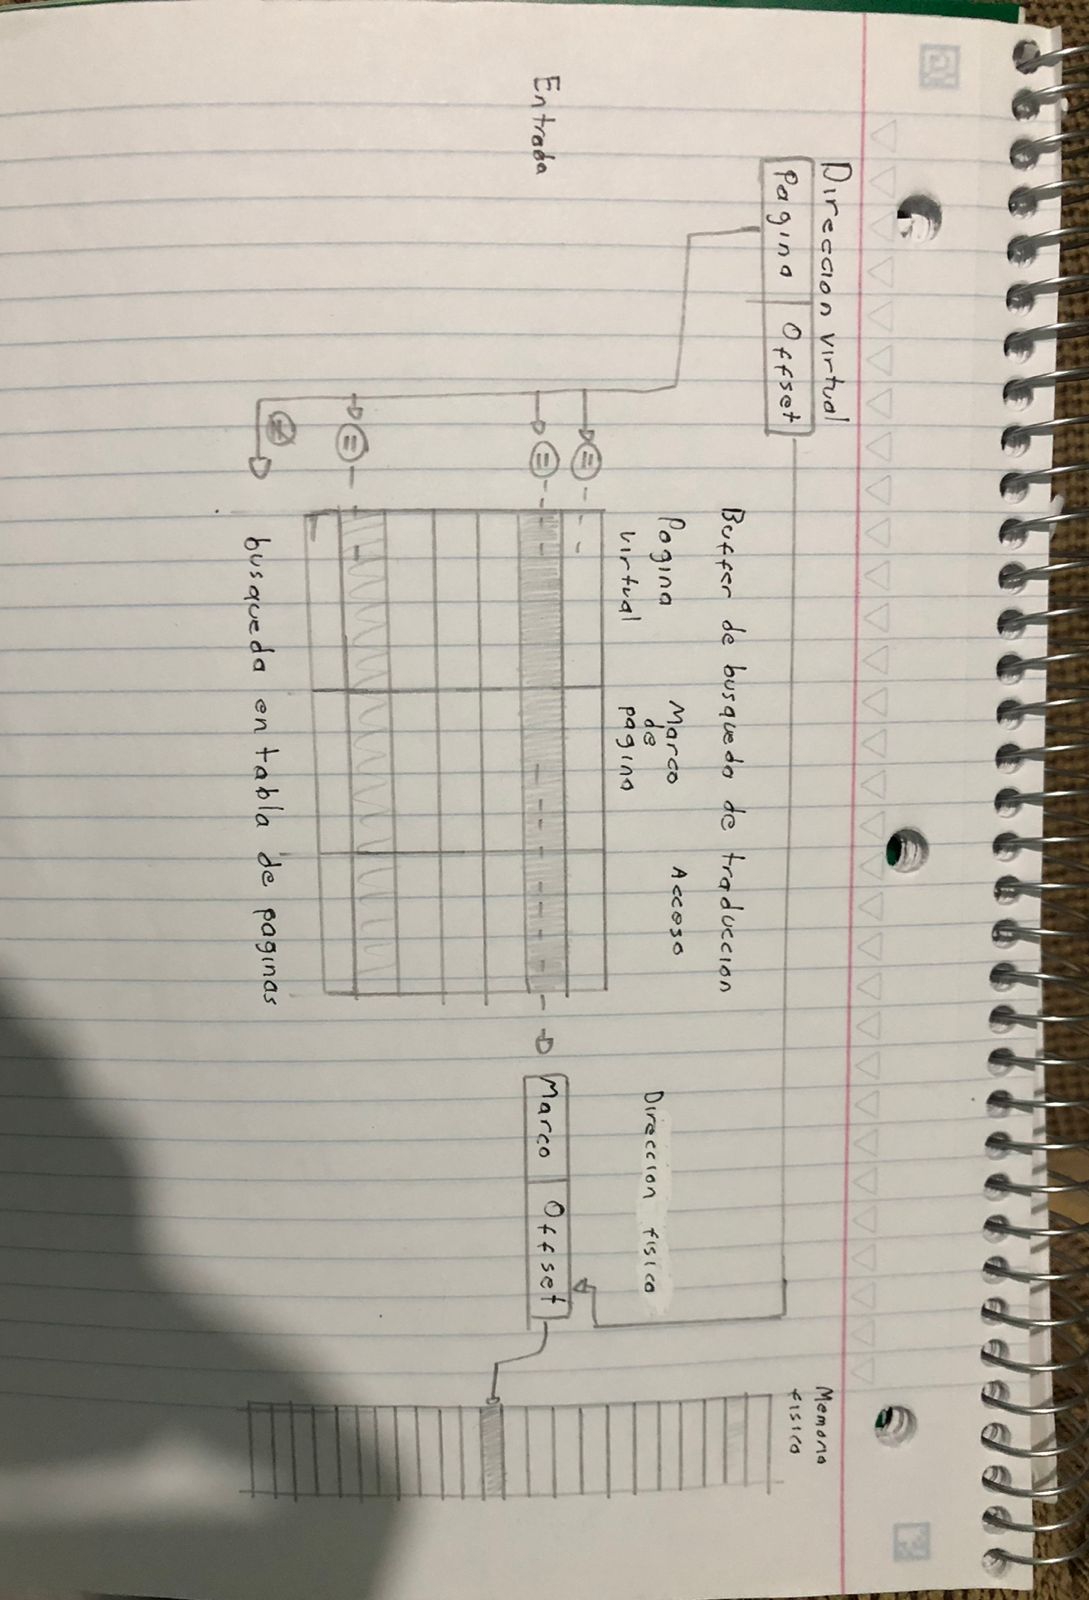 Direccion virtual
Pagina | Offset
Entrada
Buffer de busqueda de traduccion
Pagina
virtual
Marco
de
pagina
Acceso
=
=
=
≠
busqueda en tabla de paginas
Direccion fisica
Marco | Offset
Memoria
fisica